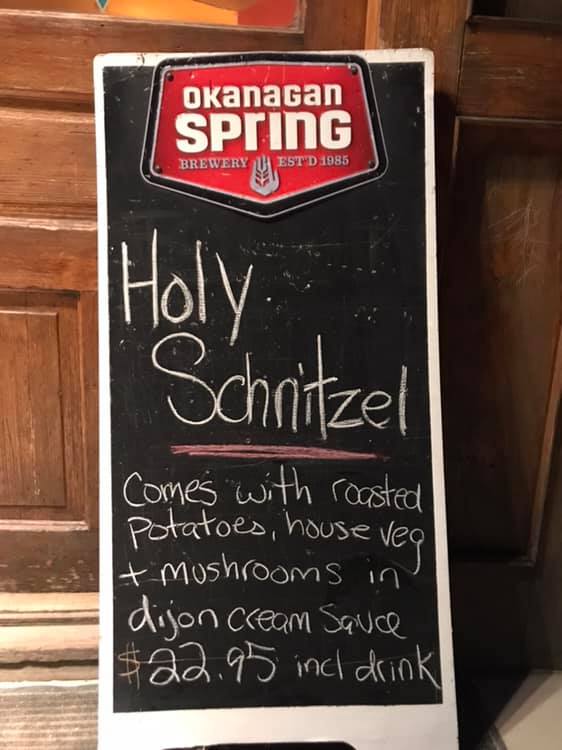 Okanagan
Spring
BREWERY EST'D 1985
Holy
Schnitzel
Comes with roasted
Potatoes, house veg
+ mushrooms in
dijon cream Sauce
$22.95 incl drink